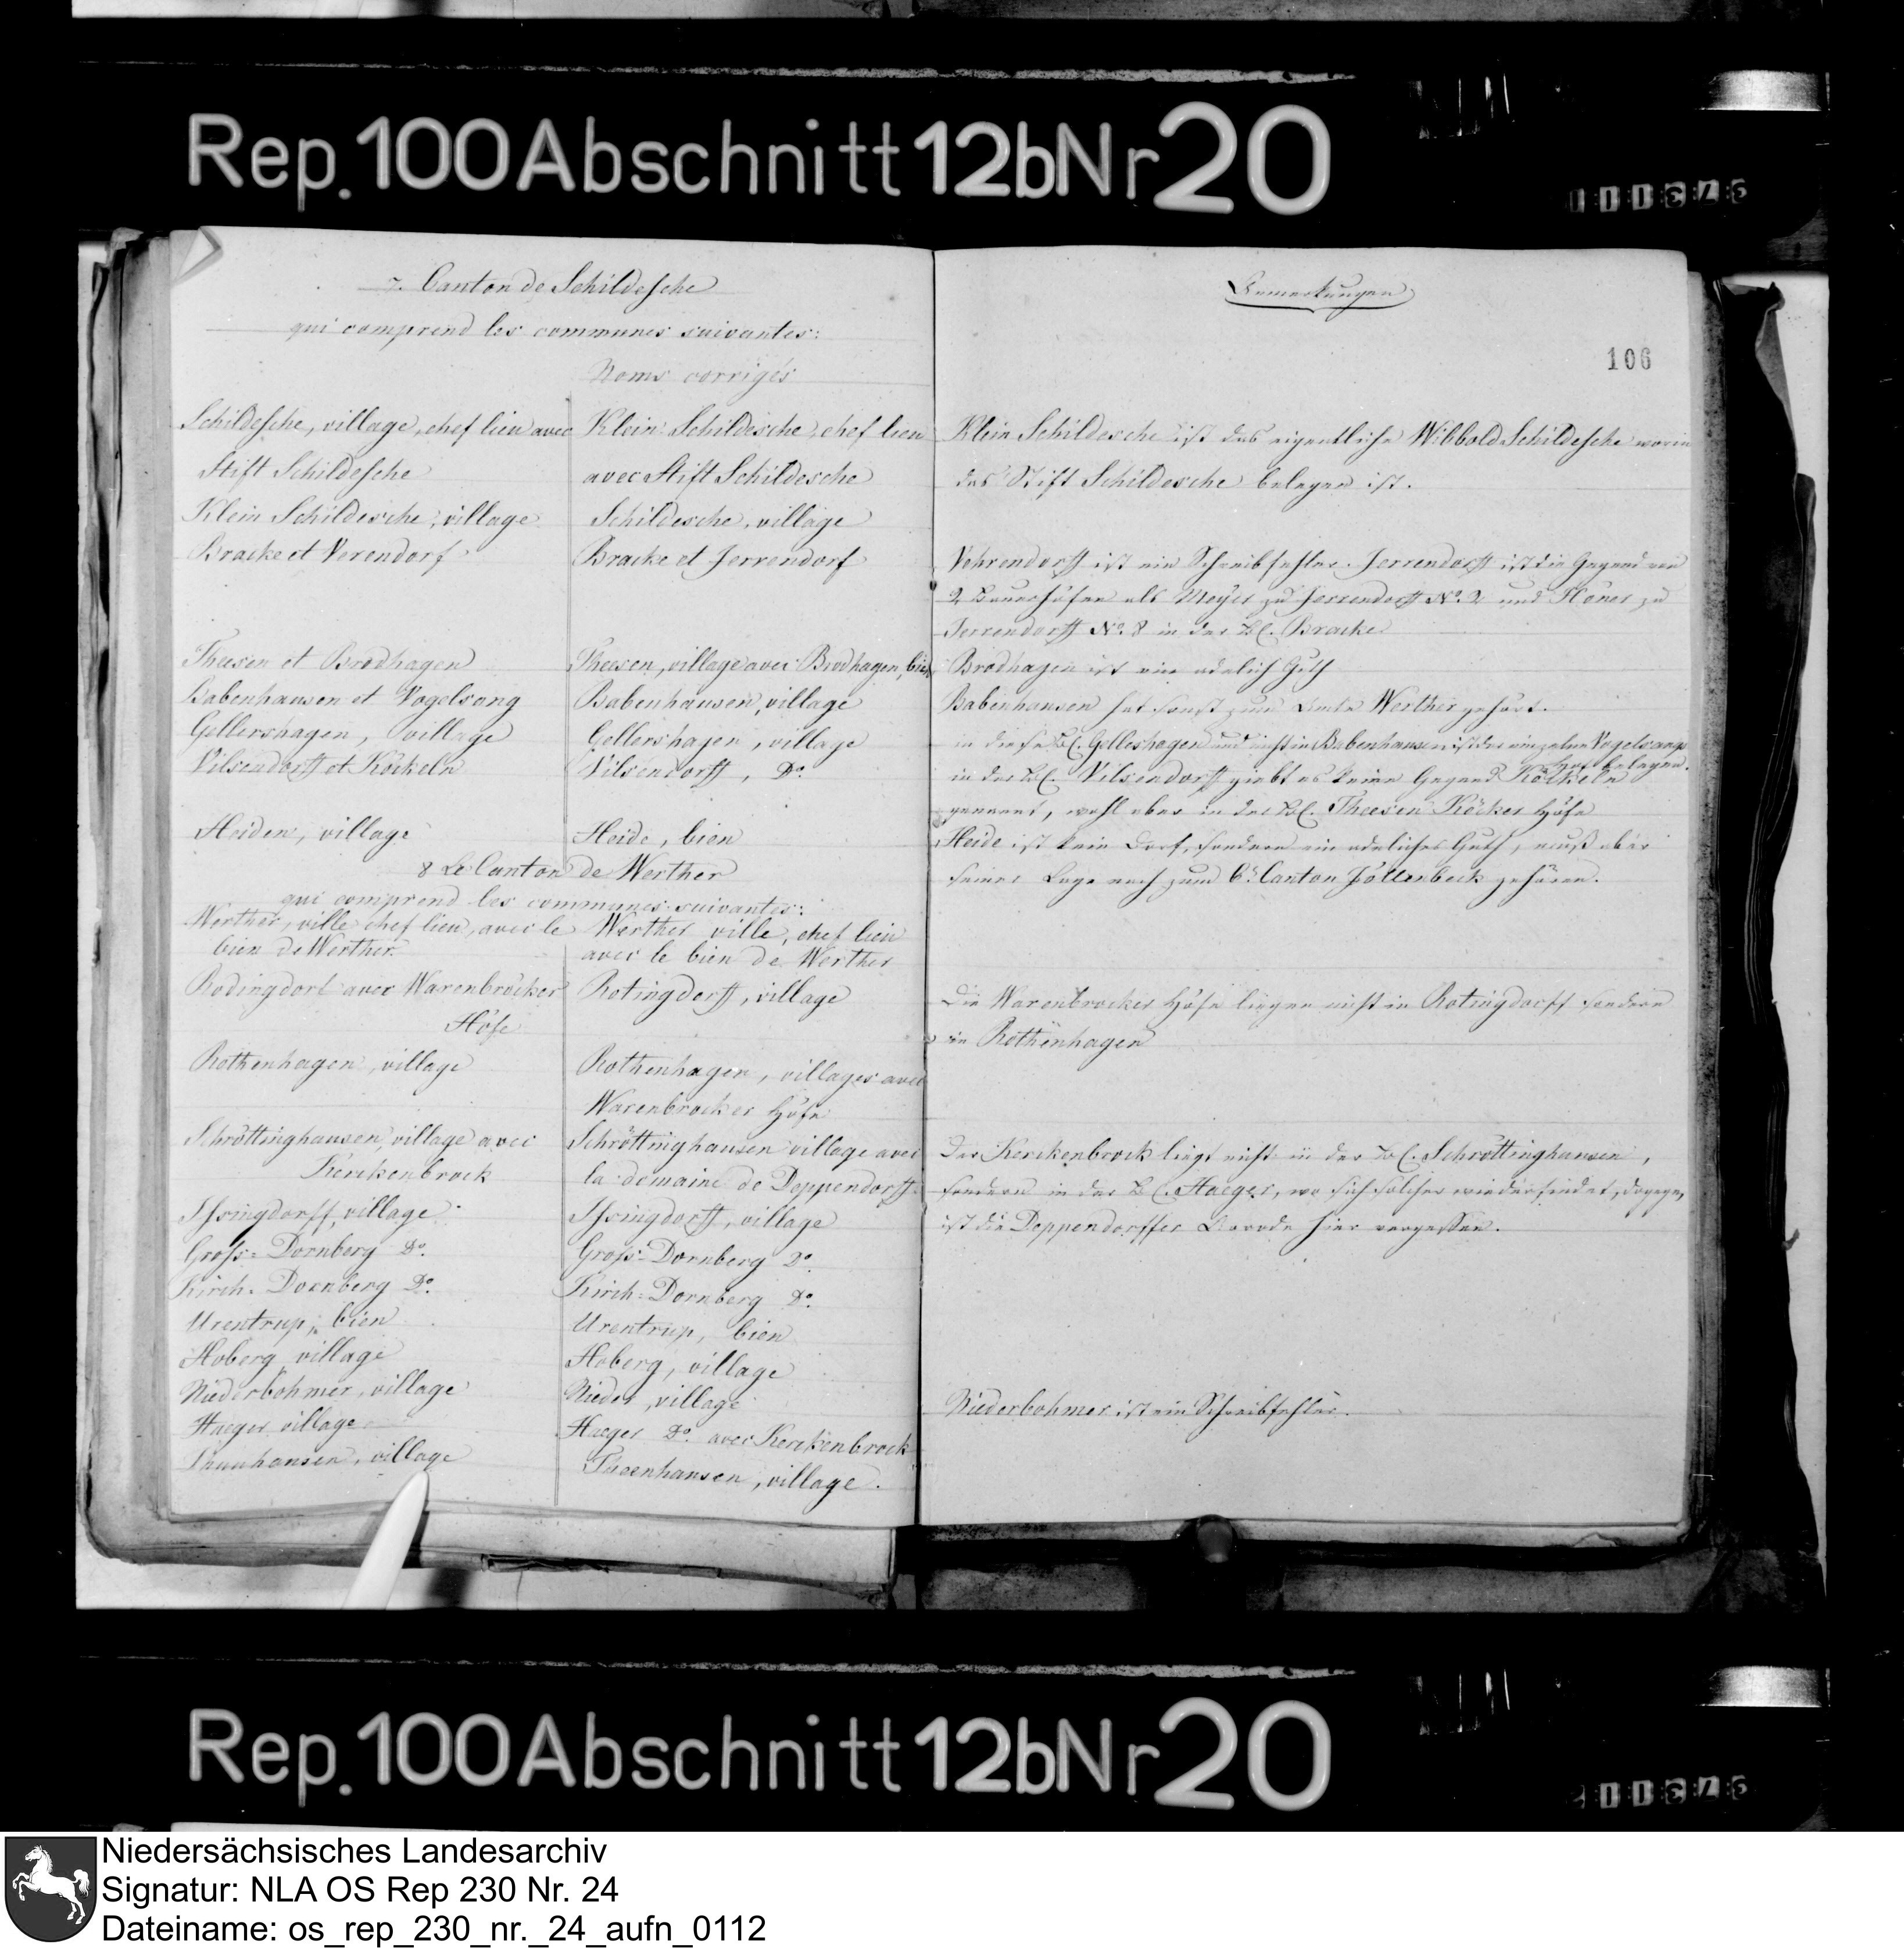 Rep. 100 Abschnitt 12b Nr 20
7. Canton de Schildesche
qui comprend les communes suivantes:
Noms corrigés
Schildesche, village, chef lieu avec
Stift Schildesche
Klein Schildesche, village
Bracke et Verendorf
Theesen et Brodhagen
Babenhausen et Vogelsang
Gellershagen, village
Vilsendorff et Köckeln
Heiden, village
Klein Schildesche, chef lieu
avec Stift Schildesche
Schildesche, village
Bracke et Jerrendorf
Theesen, village avec Brodhagen, bien
Babenhausen, village
Gellershagen, village
Vilsendorff, Do.
Heide, bien
8 Le Canton de Werther
qui comprend les communes suivantes:
Werther, ville chef lieu, avec le
bien de Werther.
Rodingdorf avec Warenbröcker
Höfe
Rothenhagen, village
Schröttinghausen, village avec
Kerckenbrock
Isringdorff, village
Gross-Dornberg Do.
Kirch-Dornberg Do.
Urentrup, bien
Hoberg, village
Niederbohmer, village
Haeger, village
hausen, village
Werther ville, chef lieu
avec le bien de Werther
Rotingdorff, village
Rothenhagen, villages avec
Warenbrocker Höfe
Schröttinghausen village avec
la domaine de Deppendorff.
Isringdorff, village
Gross-Dornberg Do.
Kirch-Dornberg Do.
Urentrup, bien
Hoberg, village
Nieder, village
Haeger Do. avec Kerckenbrock
Theenhausen, village.
Bemerkungen
106
Klein Schildesche ist das eigentliche Wibbold Schildesche worin
das Stift Schildesche belegen ist.
Vohrendorff ist ein Schreibfehler. Jerrendorff ist die Gegend von
2 Bauerhöfen als Meyer zu Jerrendorff No. 2 und Höner zu
Jerrendorff No. 8 in der BC. Bracke
Brodhagen ist ein adelich Guth
Babenhausen hat sonst zum Amte Werther gehört.
in dieser BC. Gelleshagen und nicht in Babenhausen ist der einzelne Vogelsangs
hof belegen.
in der BC. Vilsendorff giebt es keine Gegend Köckeln
genannt, wohl aber in der BC. Theesen Köcker Höfe
Heide ist kein Dorf, sondern ein adeliches Guth, muß aber
seiner Lage nach zum 6t Canton Jöllenbeck gehören.
Die Warenbrocker Höfe liegen nicht in Rotingdorff sondern
in Rothenhagen
Der Kerckenbrock liegt nicht in der BC. Schröttinghausen,
sondern in der BC. Haeger, wo sich solcher wiederfindet, dagegen
ist die Deppendorffer hier vergessen.
Niederbohmer ist ein Schreibfehler.
Rep. 100 Abschnitt 12b Nr 20
Niedersächsisches Landesarchiv
Signatur: NLA OS Rep 230 Nr. 24
Dateiname: os_rep_230_nr._24_aufn_0112